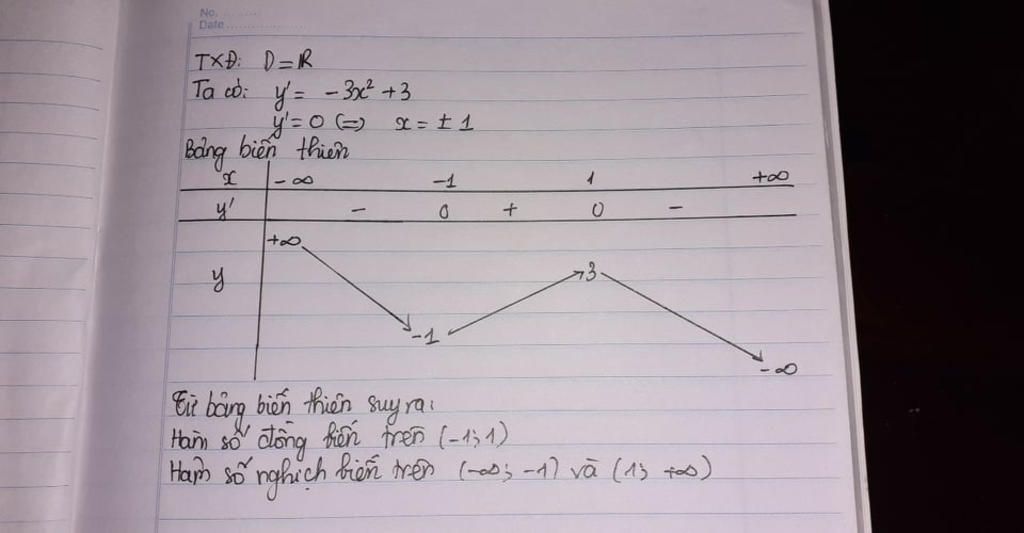 No. ..........
Date ....................
TXĐ: D = ℝ
Ta có: y' = -3x² + 3
y' = 0 (=) x = ± 1
Bảng biến thiên
x -∞ -1 1 +∞
y' - 0 + 0 -
+∞
3
y
-1
-∞
Từ bảng biến thiên suy ra:
Hàm số đồng biến trên (-1; 1)
Hàm số nghịch biến trên (-∞; -1) và (1; +∞)